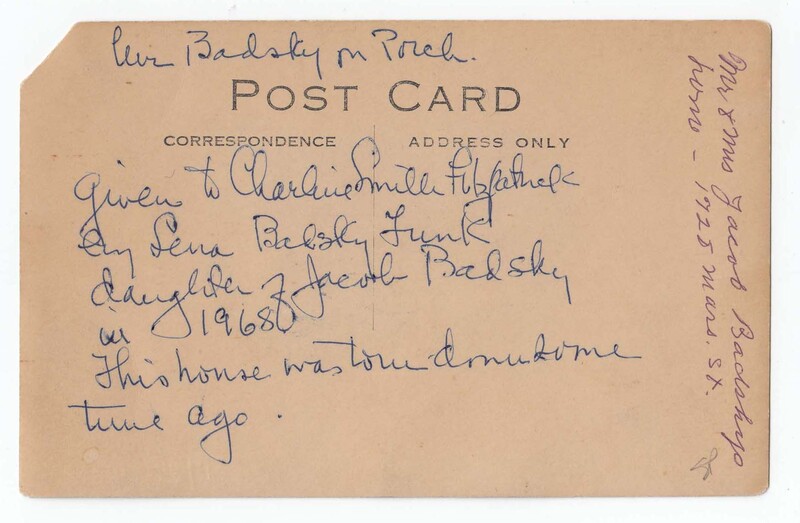 Badsky on Porch.
POST CARD
CORRESPONDENCE ADDRESS ONLY
Given to Charline Smith Fitzpatrick
by Lena Badsky Funk
daughter of Jacob Badsky
in 1968
This house was torn down some
time ago.
Mr & Mrs Jacob Badskys
home - 1925 Mass. St.